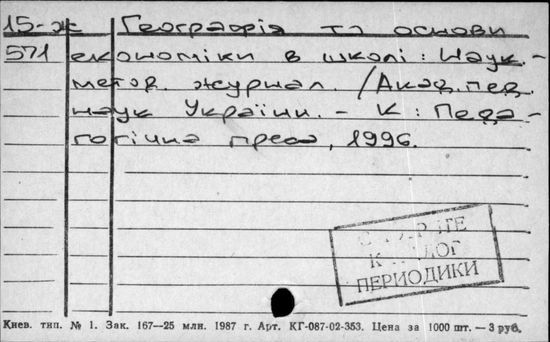 15-ж Географія та основи
571 економіки в школі: Наук.-
метод. журнал. / Акад. пед.
наук України. - К: Педа-
гогічна преса, 1996.
К
ПЕРИОДИКИ
Киев. тип. № 1. Зак. 167—25 млн. 1987 г. Арт. КГ-087-02-353. Цена за 1000 шт. — 3 руб.